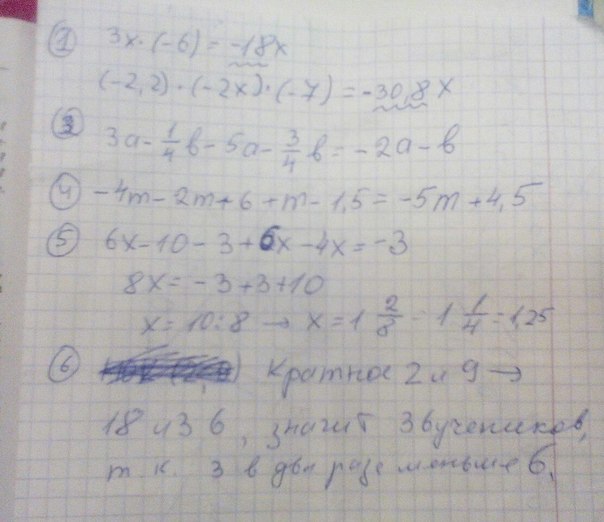 ① 3x·(-6) = -18x
(-2,2)·(-2x)·(-7) = -30,8x
③ 3a - 1/4 в - 5a - 3/4 в = -2a - в
④ -4m - 2m + 6 + m - 1,5 = -5m + 4,5
⑤ 6x - 10 - 3 + 6x - 4x = -3
8x = -3 + 3 + 10
x = 10:8 → x = 1 2/8 = 1 1/4 = 1,25
⑥ Кратное 2 и 9 →
18 и 36, значит 3 в учеников,
т.к. 3 в два раза меньше 6.